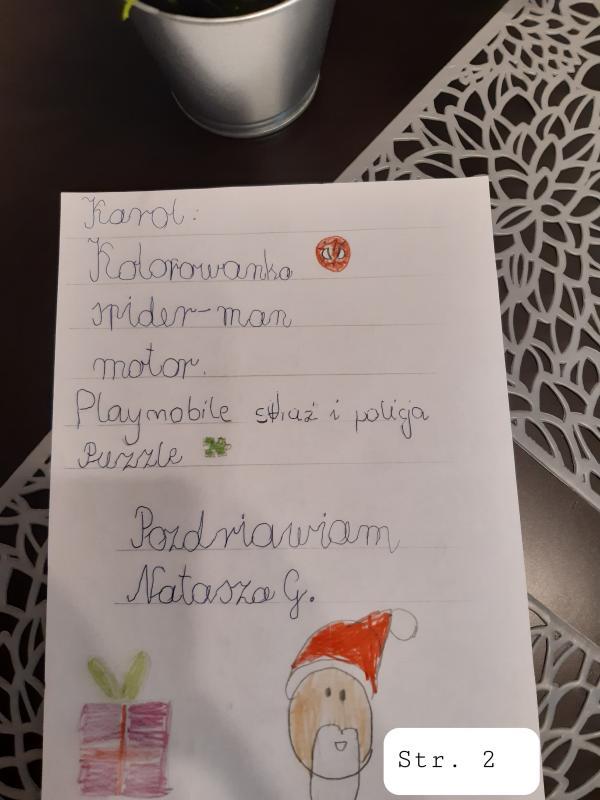 Karol:
Kolorowanka
spider-man
motor.
Playmobile straż i policja
Puzzle
Pozdriawiam
Natasza G.
Str. 2